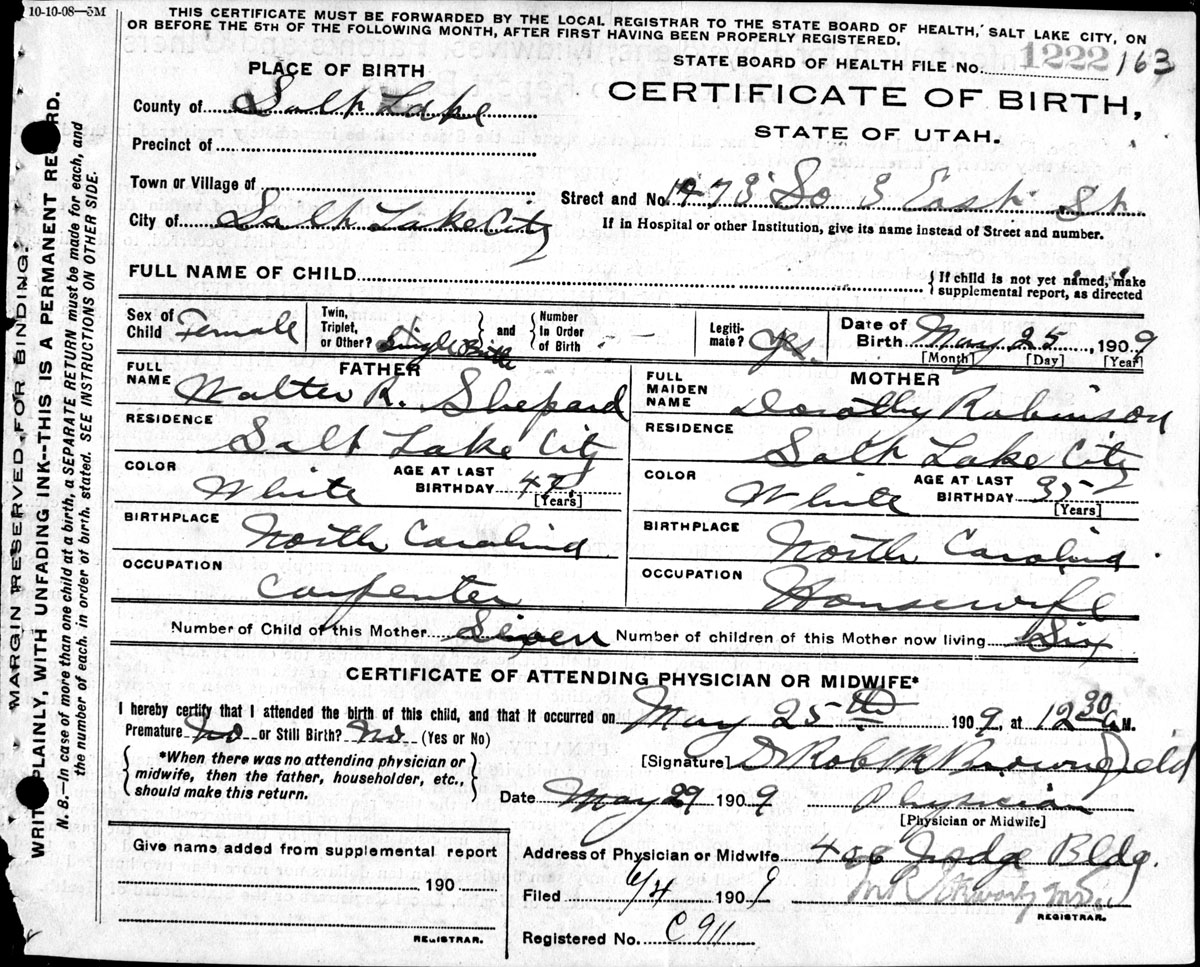 10-10-08—5M
THIS CERTIFICATE MUST BE FORWARDED BY THE LOCAL REGISTRAR TO THE STATE BOARD OF HEALTH, SALT LAKE CITY, ON
OR BEFORE THE 5TH OF THE FOLLOWING MONTH, AFTER FIRST HAVING BEEN PROPERLY REGISTERED.
STATE BOARD OF HEALTH FILE No. 1222 163
PLACE OF BIRTH
CERTIFICATE OF BIRTH,
STATE OF UTAH.
County of Salt Lake
Precinct of
Town or Village of
Street and No. 1473 So 3 East St
City of Salt Lake City
If in Hospital or other Institution, give its name instead of Street and number.
FULL NAME OF CHILD
{If child is not yet named, make
supplemental report, as directed
Sex of Child Female
Twin, Triplet, or Other? Single Birth
and
Number In Order of Birth —
Legitimate? Yes.
Date of Birth May 25, 1909
[Month] [Day] [Year]
FATHER
FULL NAME Walter R. Shepard
RESIDENCE Salt Lake City
COLOR White
AGE AT LAST BIRTHDAY 47
[Years]
BIRTHPLACE North Carolina
OCCUPATION Carpenter
MOTHER
FULL MAIDEN NAME Dorothy Robinson
RESIDENCE Salt Lake City
COLOR White
AGE AT LAST BIRTHDAY 35
[Years]
BIRTHPLACE North Carolina
OCCUPATION Housewife
Number of Child of this Mother Seven Number of children of this Mother now living Six
CERTIFICATE OF ATTENDING PHYSICIAN OR MIDWIFE*
I hereby certify that I attended the birth of this child, and that it occurred on May 25th 1909, at 12 30 A M.
Premature No or Still Birth? No (Yes or No)
[Signature] Dr Robt R Brownfield
{ *When there was no attending physician or
midwife, then the father, householder, etc.,
should make this return. }
Date May 29 1909 Physician
[Physician or Midwife]
Give name added from supplemental report
190
REGISTRAR.
Address of Physician or Midwife 406 Judge Bldg.
Filed 6/4 1909
REGISTRAR.
Registered No. C 911
MARGIN RESERVED FOR BINDING.
WRITE PLAINLY, WITH UNFADING INK--THIS IS A PERMANENT RECORD.
N. B.—In case of more than one child at a birth, a SEPARATE RETURN must be made for each, and
the number of each, in order of birth, stated. SEE INSTRUCTIONS ON OTHER SIDE.